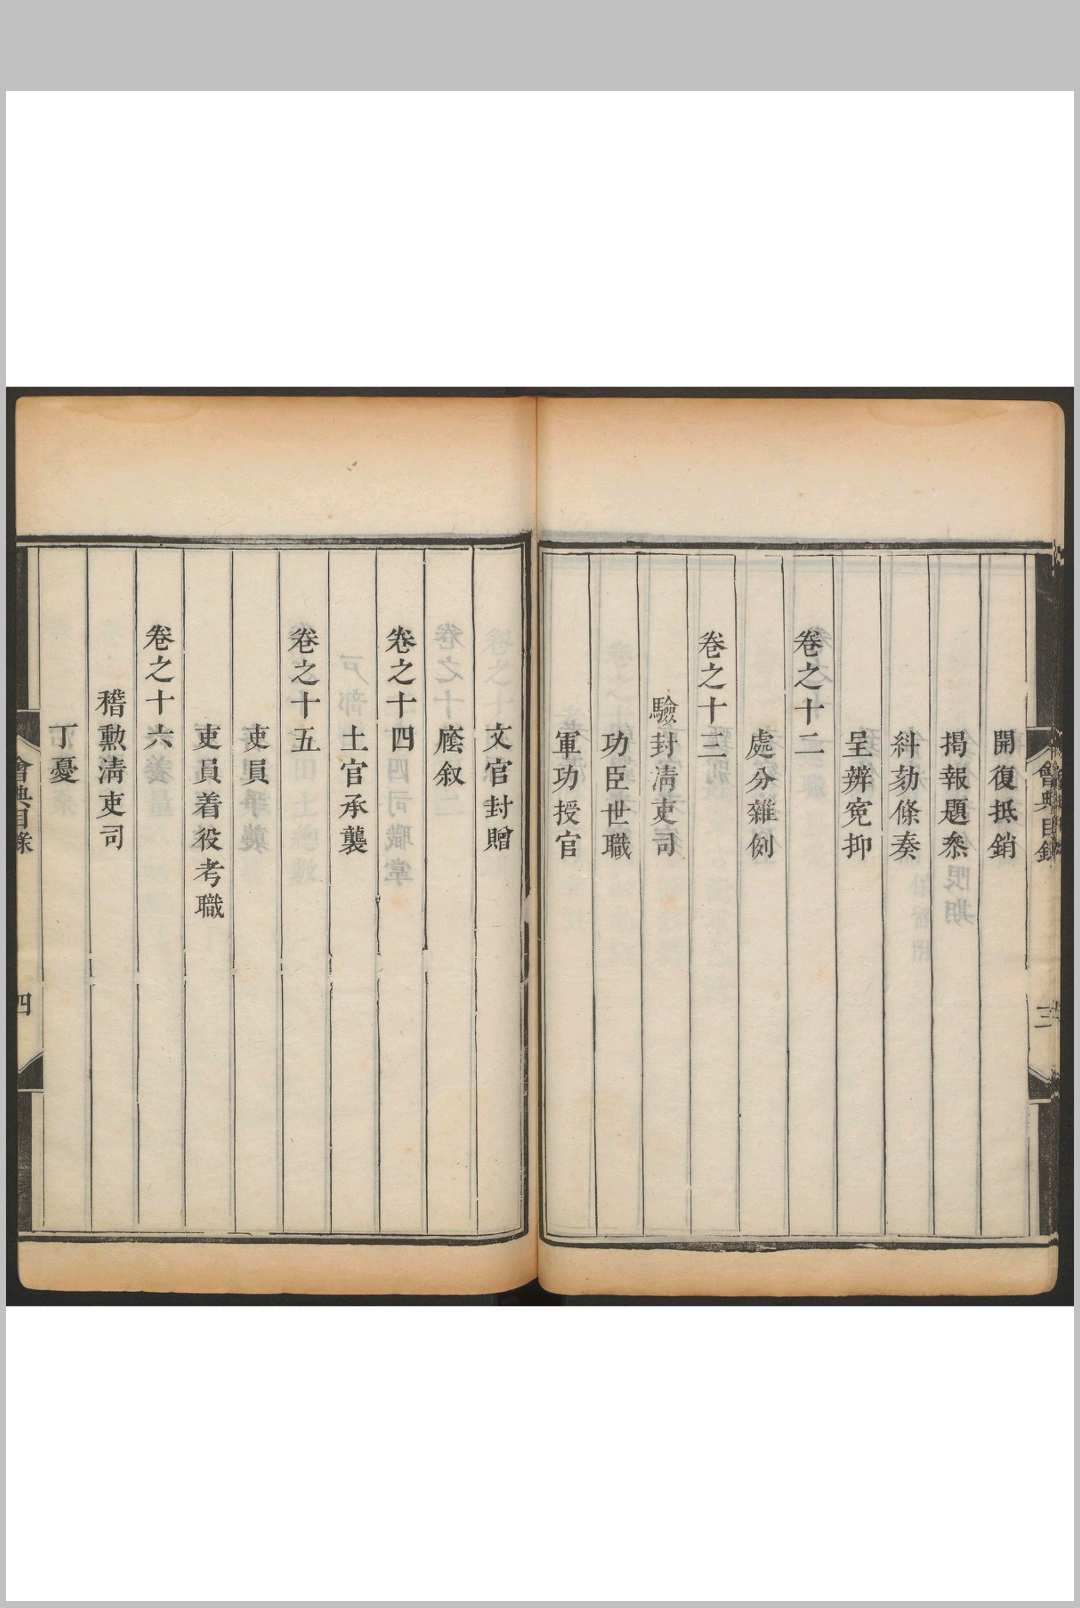 會典目錄
三
開復抵銷
揭報題叅
糾劾條奏
呈辨寃抑
卷之十二
處分雜例
卷之十三
驗封凊吏司
功臣世職
軍功授官
文官封贈
廕叙
卷之十四
土官承襲
卷之十五
吏員
吏員着役考職
卷之十六
稽勲清吏司
丁憂
會典目錄
四